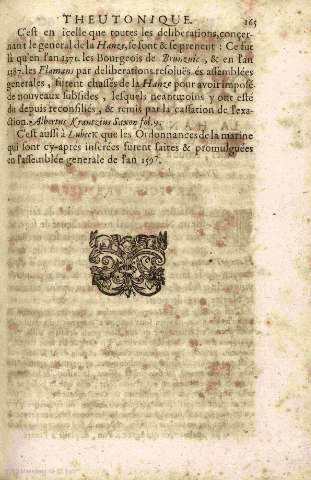 THEUTONIQUE. 165
C'est en icelle que toutes les deliberations, concer-
nant le general de la Hanze, se font & se prenent : Ce fut
là qu'en l'an 1371. les Bourgeois de Brunzvic, & en l'an
1387. les Flamans par deliberations resoluës és assemblées
generales, furent chassés de la Hanze pour avoir imposé
de nouveaux subsides, lesquels neantmoins y ont esté
du depuis reconsiliés, & remis par la cassation de l'exa-
ction. Albertus Krantzius Saxon fol. 9.
C'est aussi à Lubeck que les Ordonnances de la marine
qui sont cy-aprés inserées furent faites & promulguées
en l'assemblée generale de l'an 1597.